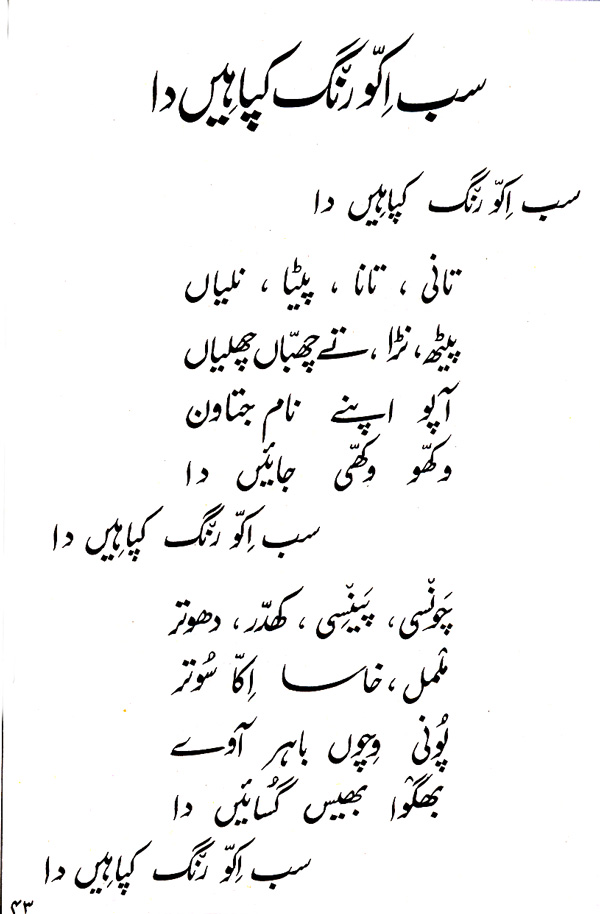 سب اِکّو رنگ کپاہِیں دا
سب اِکّو رنگ کپاہِیں دا
تانی ، تانا ، پیٹا ، نلیاں
پیٹھ، نڑا ، تے چھبّاں چھلیاں
آپو اپنے نام جتاون
وکھّو وکھّی جائیں دا
سب اِکّو رنگ کپاہِیں دا
چَونْسی، پَینْسِی ، کھدّر، دھوتر
ململ، خاسا اِکّا سُوتر
پُونی وِچوں باہر آوے
بھگوا بھیس گسائیں دا
سب اِکّو رنگ کپاہِیں دا
۴۳